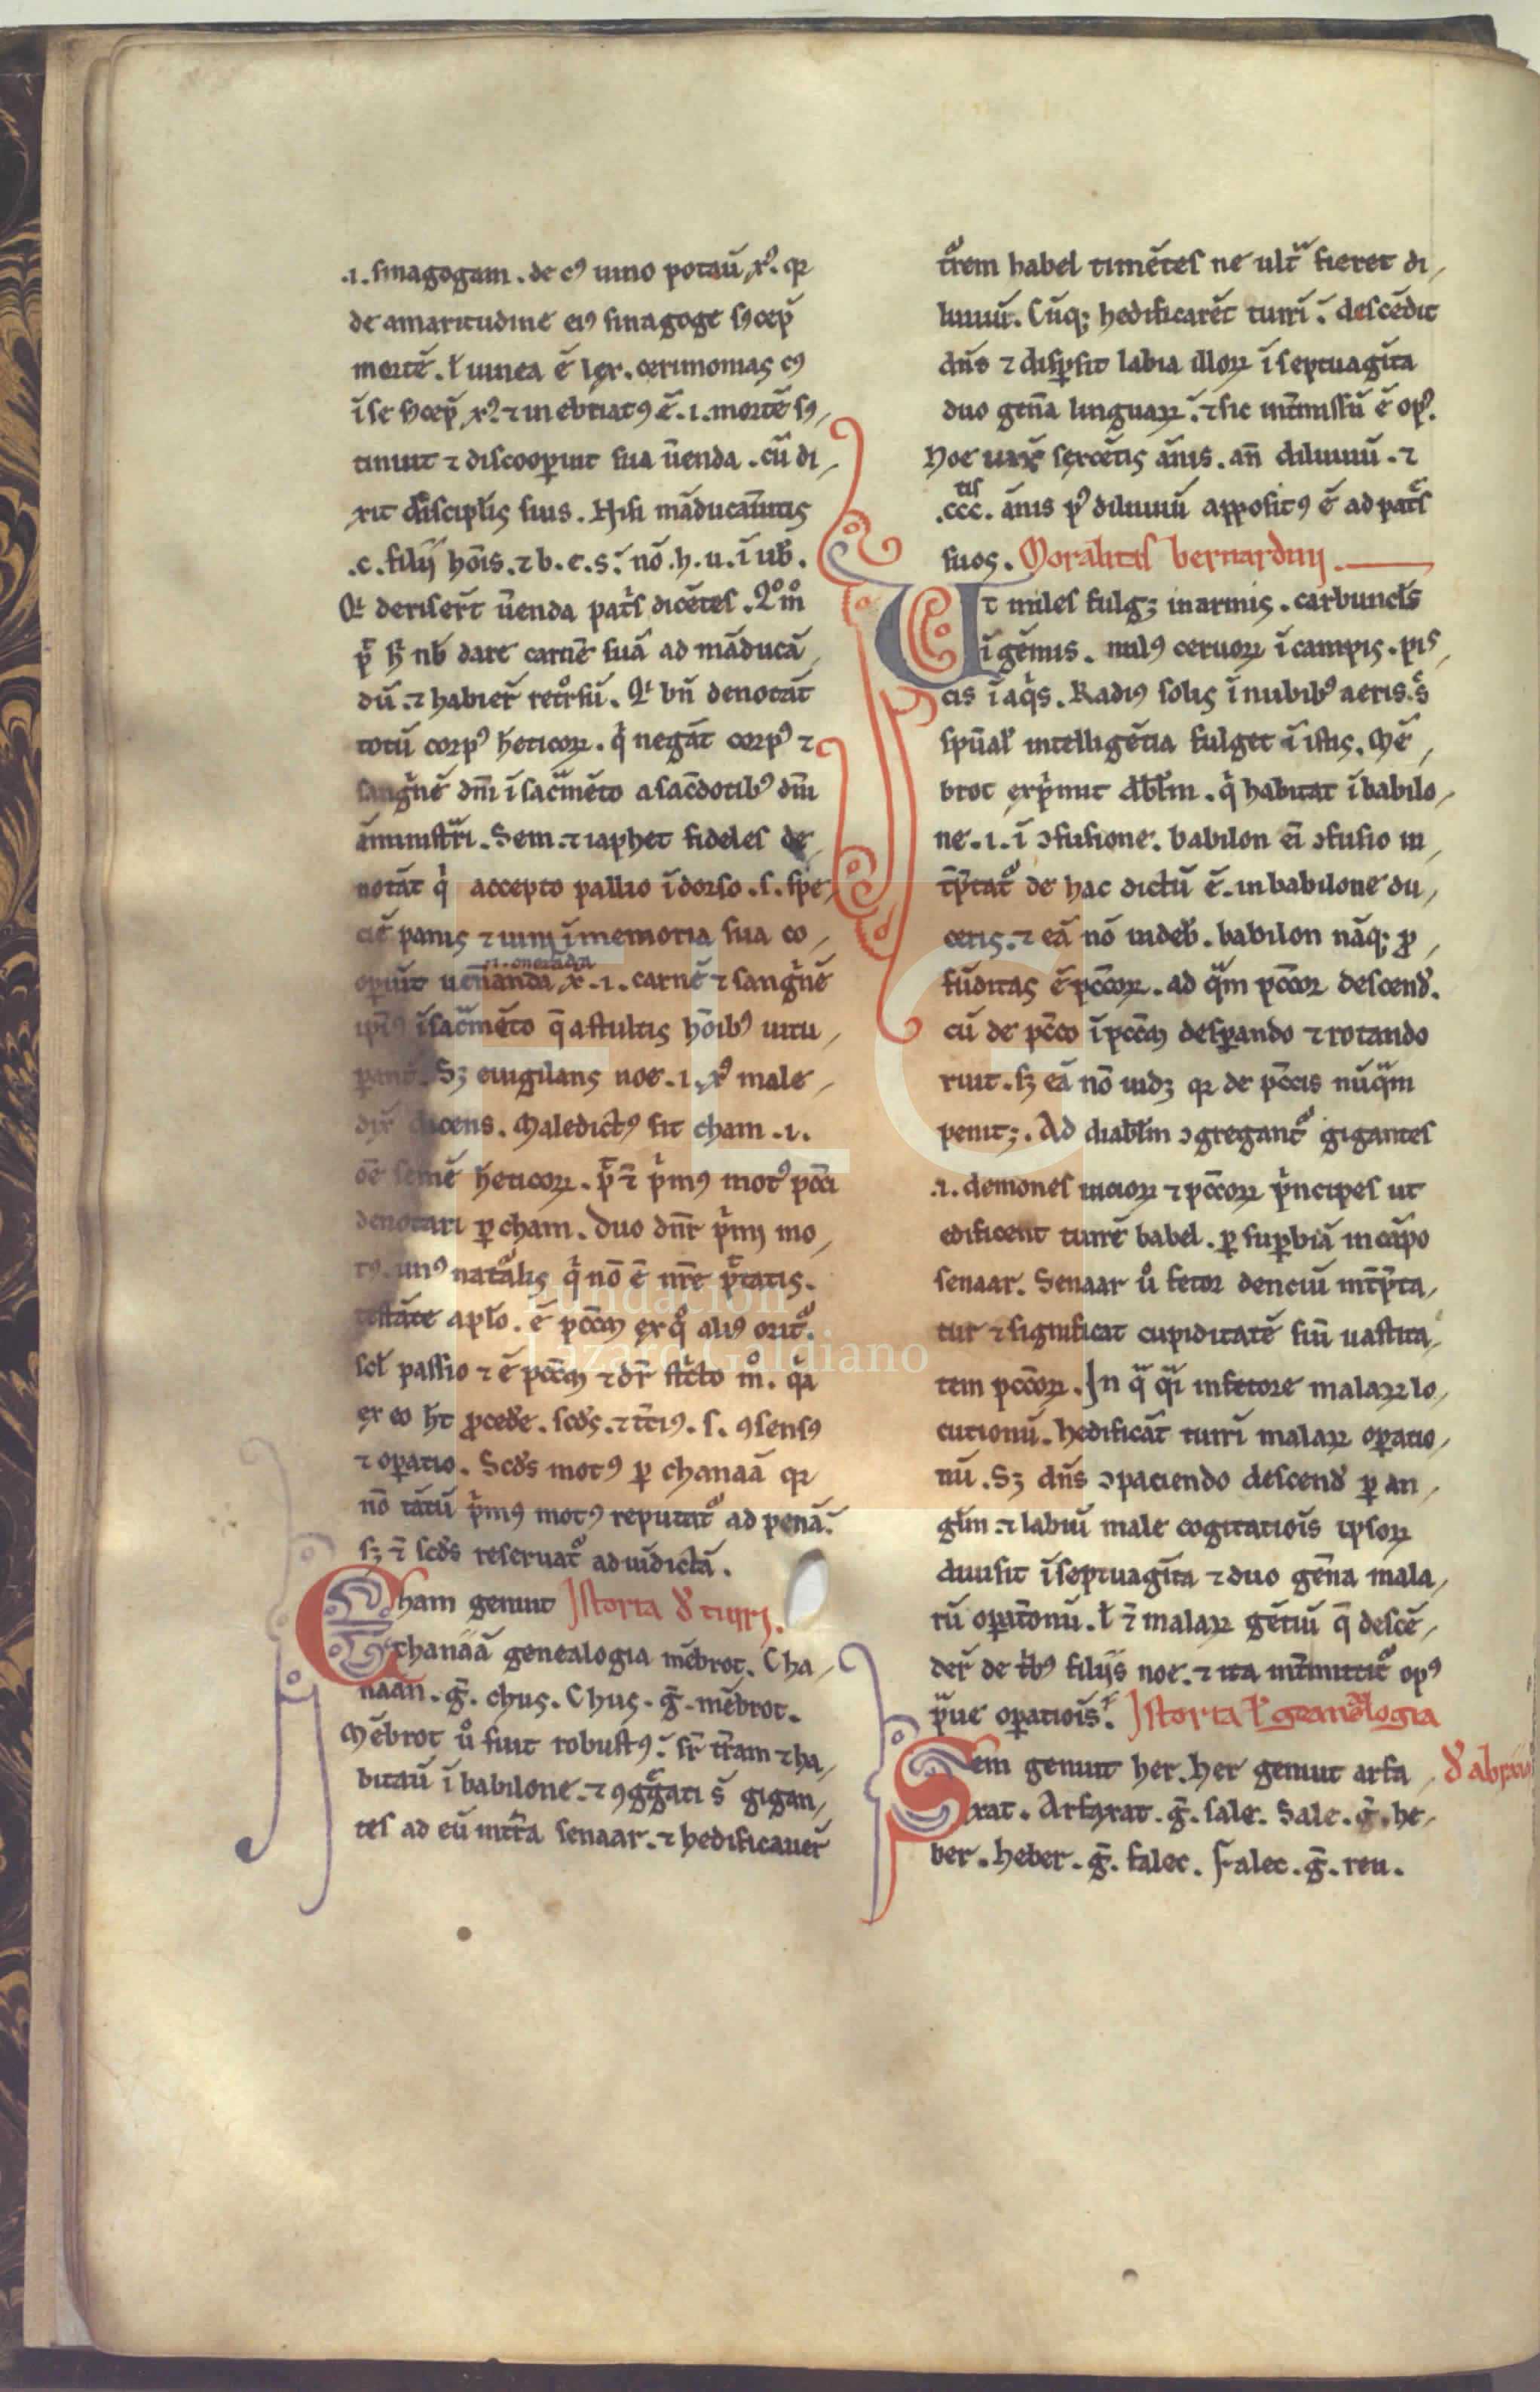 .i. sinagogam . de cꝰ uino potaũ xꝰ. qꝛ
de amaritudine eiꝰ sinagoge sꝰcep̃
mortẽ . ł uinea ẽ lex . cerimonias cꝰ
ĩ se sꝰcep̃ xꝰ ⁊ inebriatꝰ ẽ .i. mortẽ sꝰ
tinuit ⁊ discoopͥuit sua ũenda . cũ di
xit discipłis suis . Nisi mãducaũitis
.c. filij hõis . ⁊ b . e . s . nõ . h . u . ĩ ub̃ .
Qͥ derisert̃ ũenda patͥs dicẽtes . Qͦmͦ
p̃t h̓ nb̃ dare carnẽ suã ad mãducã
dũ . ⁊ habier̃ retͦrsũ . Qͥ bñ denotãt
totũ corpꝰ h̓eticoꝝ . qͥ negãt corpꝰ ⁊
sangͥnẽ dñi ĩ sac̃mẽto a sac̃dotibꝰ dñi
ãministͣri . Sem . ⁊ iaphet fideles de
notãt qͥ accepto pallio ĩ dorso . s . spe
ciẽ panis ⁊ uini ĩ memoria sua co
opͥuit uen̄anda x̃ .i. carnẽ ⁊ sangͥnẽ
ipiꝰ ĩ sac̃mẽto q̃ a stultis hõibꝰ uitu
. Sꝫ euigilans noe .i. xꝰ male
dix̃ dicens . Maledictꝰ sit cham .i.
oẽ semẽ h̓eticoꝝ . p̃t ⁊̃ pͥmꝰ motꝰ pcc̃i
denotari ꝑ cham . Duo dñr pͥmi mo
tꝰ . unꝰ natͣalis qͥ nõ ẽ nr̃e p̃tatis .
testãte apło . ẽ pcc̃m ex qͦ aliꝰ oritᷣ .
scł passio ⁊ ẽ pcc̃m ⁊ dr̃ stͥcto mͦ . qͥa
ex eo h̓t ꝓcede̓ . scds̃ . ⁊ tc̃iꝰ . s . ꝯsensꝰ
⁊ oꝑatio . Scds̃ motꝰ ꝑ chanaã qꝛ
nõ tãtũ pͥmꝰ motꝰ reputatᷣ ad penã .
sꝫ ⁊̃ scds̃ reseruatᷣ ad uĩdictã .
Cham genuit Istoria ð turri .
chanaã genealogia mẽbrot . Cha
naan . g̃ . chus . Chus . g̃ . mẽbrot .
Mẽbrot uͦ fuit robustꝰ . sr̃ tr̃am ⁊ ha
bitaũ ĩ babilone . ⁊ ꝯgͤgati s̃ gigan
tes ad eũ intͣa senaar . ⁊ hedificauer̃
tᷣrem babel timẽtes ne ultͣ fieret di
luuiũ . Cũqꝫ hedificarẽt turrĩ . descẽdit
dñs ⁊ disꝑsit labia illoꝝ ĩ septuagĩta
duo geña linguaꝝ . ⁊ sic int̃missũ ẽ opꝰ .
Noe uix̃ sexcẽtis ãnis . añ diluuiũ . ⁊
.ccc.tis ãnis pꝰ diluuiũ appositꝰ ẽ ad patͤs
suos . Moralitas bernardini .
Ut miles fulgꝫ in armis . carbuncłs
ĩ gẽmis . milꝰ ceruoꝝ ĩ campis . pis
cis ĩ aqͥs . Radiꝰ solis ĩ nubibꝰ aeris . sͨ
spũal̓ intelligẽtia fulget ĩ istis . Mẽ
brot expͥmit dbł̃m . qͥ habitat ĩ babilo
ne .i. ĩ ↄfusione . babilon ẽi ↄfusio in
t̃p̃tatᷣ de hac dictũ ẽ . in babilone du
ceris . ⁊ eã nõ uideb̓ . babilon nãqꝫ ꝓ
fũditas ẽ pcc̃oꝝ . ad qͣm pcc̃or descend̓ .
cũ de pcc̃o ĩ pcc̃m desꝑando ⁊ rotando
ruit . sꝫ eã nõ uidꝫ qꝛ de pcc̃is nũqͣm
penitꝫ . Ad diabł̃m ↄgregantᷣ gigantes
.i. demones uicioꝝ ⁊ pcc̃oꝝ pͥncipes ut
edificent turrẽ babel . ꝑ suꝑbiã in cãpo
senaar . Senaar uͦ fetor denciũ int̃p̃ta
tur ⁊ significat cupiditatẽ siũ uastita
tem pcc̃oꝝ . In qͣ qͣi in fetore malaꝝ lo
cutionũ . hedificãt turrĩ malaꝝ oꝑatio
nũ . Sꝫ dñs ↄpaciendo descend̓ ꝑ an
gł̃m . ⁊ labiũ male cogitatiõis ipsoꝝ
diuisit ĩ septuagĩta ⁊ duo geña mala
rũ oꝑat̃onũ . ł ⁊̃ malaꝝ gẽtiũ q̃ descẽ
der̃ de tͥbꝰ filijs noe . ⁊ ita int̃mittitᷣ opꝰ
pͣue oꝑatiõis . Istoria ł geanałogia
Sem genuit her . her genuit arfa ð abraã
xat . Arfaxat . g̃ . sale . Sale . g̃ . he
ber . heber . g̃ . falec . Falec . g̃ . reu .
FLG
Fundación
Lázaro Galdiano